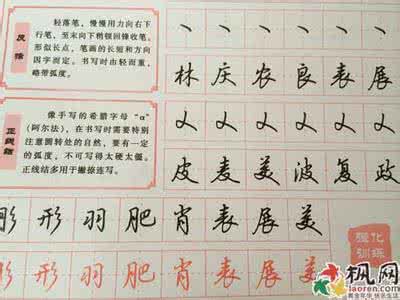 反捺
轻落笔，慢慢用力向右下
行笔，至末向下稍顿回锋收笔。
形似长点，笔画的长短和方向
因字而定。书写时由轻而重，
略带弧度。
林 庆 农 良 表 展
正线结
像手写的希腊字母“α”
（阿尔法），在书写时需要特别
注意圆转处的自然，要有一定
的弧度，不可写得太硬太僵。
正线结多用于撇捺连写。
皮 麦 美 波 复 政
彤 形 羽 肥 肖 表 展 美
彤 形 羽 肥 肖 表 展 美
强化
训练
枫网
laoren.com